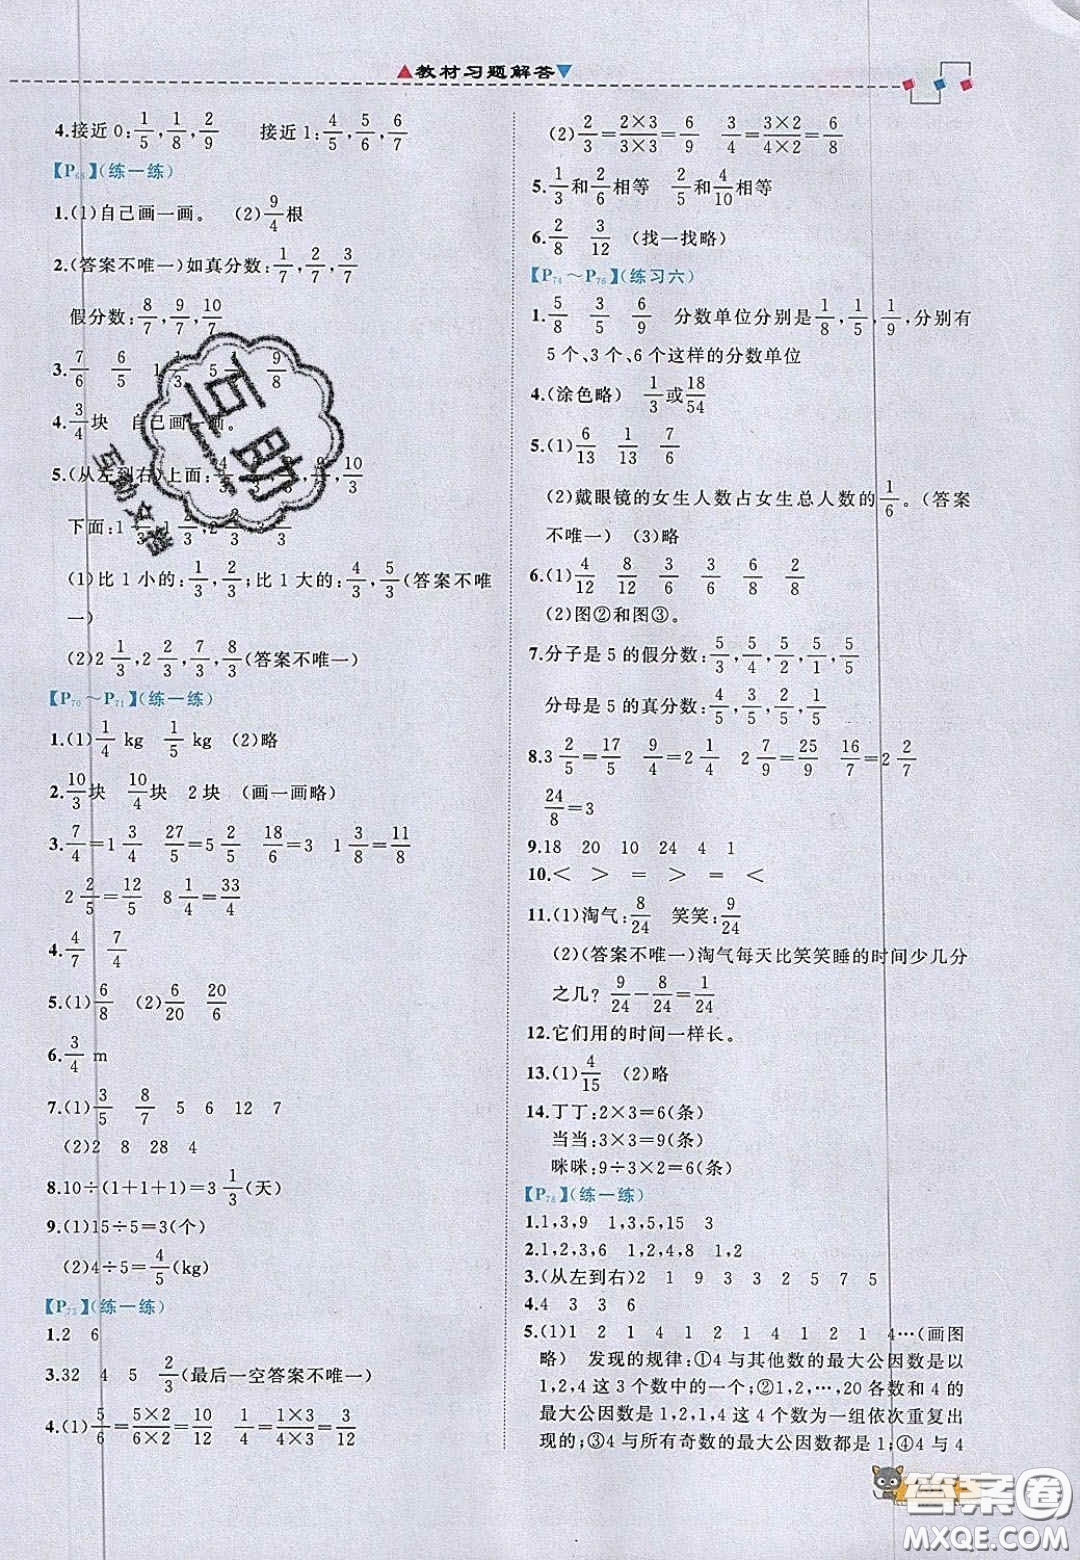 教材习题解答
4.接近 0:1/5,1/8,2/9 接近 1:4/5,5/6,6/7
【P68】(练一练)
1.(1)自己画一画。 (2)9/4根
2.(答案不唯一)如真分数:1/7,2/7,3/7
假分数:8/7,9/7,10/7
3.7/6 6/5 9/8
4.3/4块 自己画一画。
5.(从左到右)上面:10/3
下面:
(1)比 1 小的:1/3,2/3;比 1 大的:4/3,5/3(答案不唯
一)
(2)2 1/3,2 2/3,7/3,8/3(答案不唯一)
【P70~P71】(练一练)
1.(1)1/4 kg 1/5 kg (2)略
2.10/3块 10/4块 2 块 (画一画略)
3.7/4=1 3/4 27/5=5 2/5 18/6=3 1 3/8=11/8
2 2/5=12/5 8 1/4=33/4
4.4/7 7/4
5.(1)6/8 (2)6/20 20/6
6.3/4 m
7.(1)3/5 8/7 5 6 12 7
(2)2 8 28 4
8.10÷(1+1+1)=3 1/3(天)
9.(1)15÷5=3(个)
(2)4÷5=4/5(kg)
【P73】(练一练)
1.2 6
3.32 4 5 2/3(最后一空答案不唯一)
4.(1)5/6=5×2/6×2=10/12 1/4=1×3/4×3=3/12
(2)2/3=2×3/3×3=6/9 3/4=3×2/4×2=6/8
5.1/3和2/6相等 2/5和4/10相等
6.2/8 3/12 (找一找略)
【P74~P76】(练习六)
1.5/8 3/5 6/9 分数单位分别是1/8,1/5,1/9,分别有
5 个、3 个、6 个这样的分数单位
4.(涂色略) 1/3或18/54
5.(1)6/13 1/13 7/6
(2)戴眼镜的女生人数占女生总人数的1/6。(答案
不唯一) (3)略
6.(1)4/12 8/12 3/6 3/6 6/8 2/8
(2)图②和图③。
7.分子是 5 的假分数:5/3,5/4,5/2,5/1,5/5
分母是 5 的真分数:4/5,3/5,2/5,1/5
8.3 2/5=17/5 9/4=2 1/4 2 7/9=25/9 16/7=2 2/7
24/8=3
9.18 20 10 24 4 1
10.< > = > = <
11.(1)淘气:8/24 笑笑:9/24
(2)(答案不唯一)淘气每天比笑笑睡的时间少几分
之几? 9/24-8/24=1/24
12.它们用的时间一样长。
13.(1)4/15 (2)略
14.丁丁:2×3=6(条)
当当:3×3=9(条)
咪咪:9÷3×2=6(条)
【P78】(练一练)
1.1,3,9 1,3,5,15 3
2.1,2,3,6 1,2,4,8 1,2
3.(从左到右)2 1 9 3 3 2 5 7 5
4.4 3 3 6
5.(1)1 2 1 4 1 2 1 4 1 2 1 4…(画图
略) 发现的规律:①4 与其他数的最大公因数是以
1,2,4 这 3 个数中的一个;②1,2,…,20 各数和 4 的
最大公因数是 1,2,1,4 这 4 个数为一组依次重复出
现的;③4 与所有奇数的最大公因数都是 1;④4 与 4
互助
答案圈
MXQE.COM